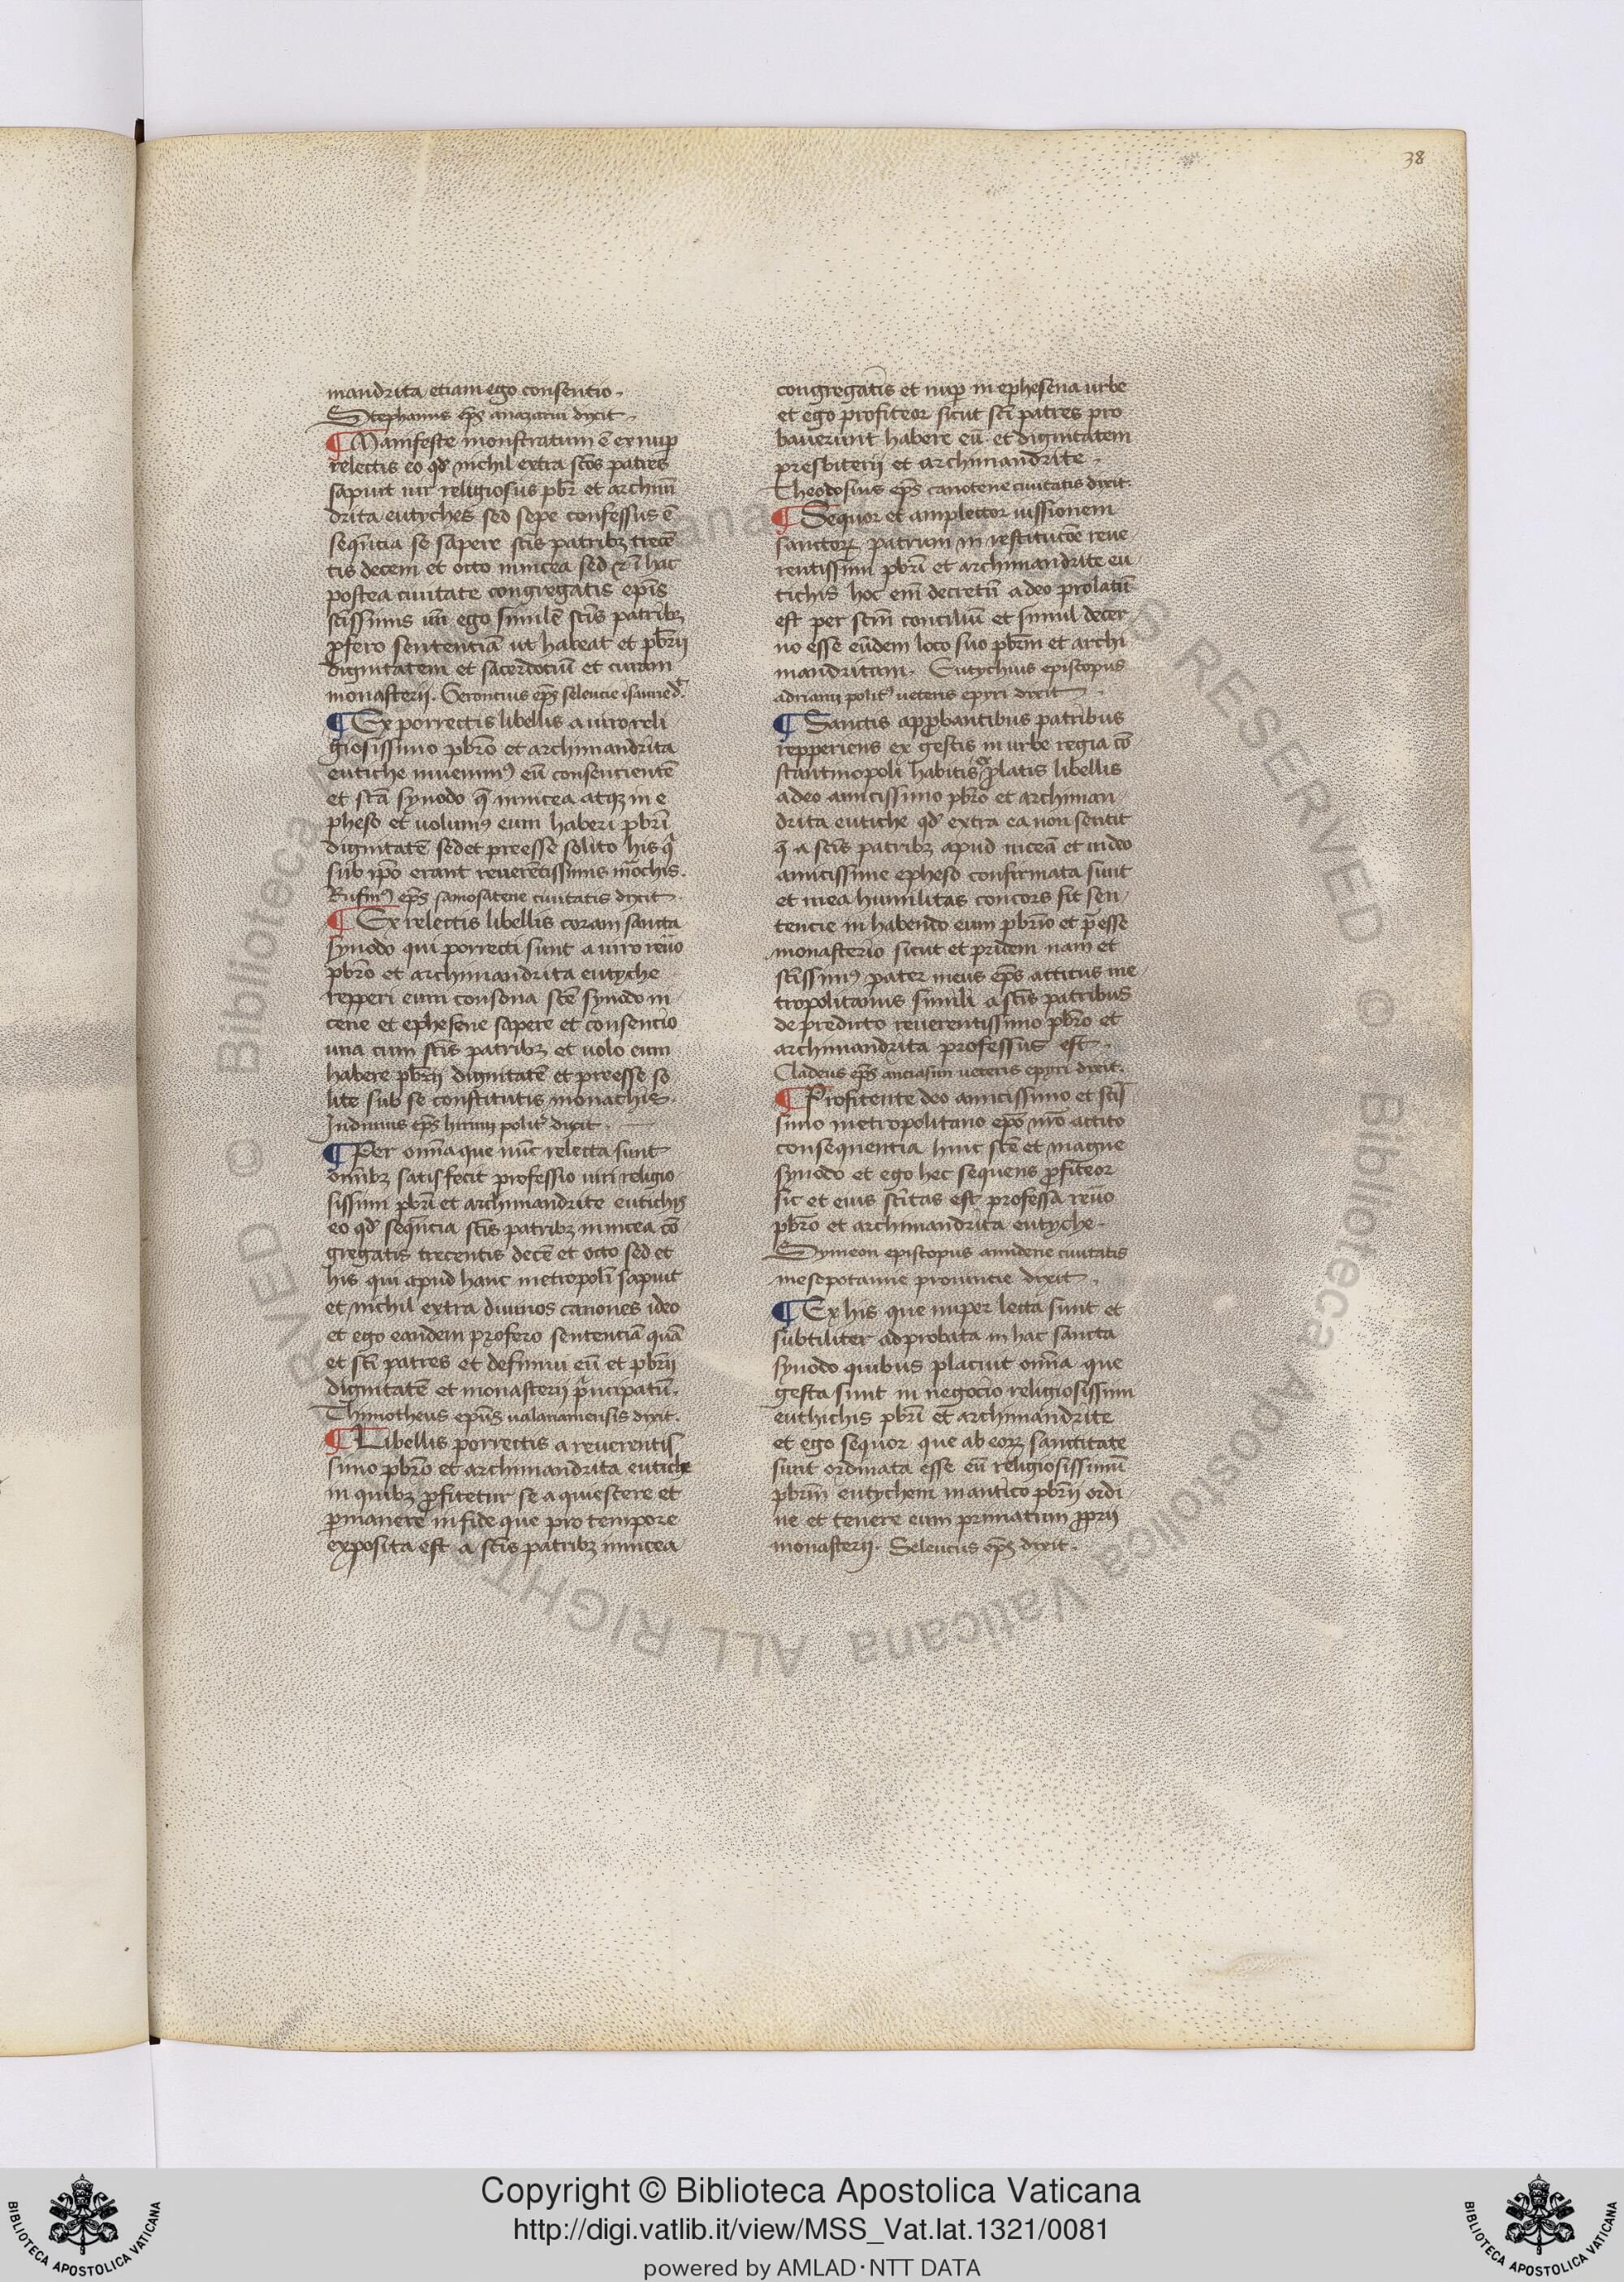 38
mandrita etiam ego consentio.
Stephanus ep̄s anazarui dixit.
¶ Manifeste monstratum ē ex nup
relectis eo qd nichil extra sc̄os patres
sapuit uir religiosus pbr̄ et archim̄
drita eutyches sed sepe confessus ē
seqn̄cia se sapere sc̄is patribꝫ trecē
tis decem et octo in nicea sed et ī hac
postea ciuitate congregatis ep̄is
sc̄issimis un̄ ego similē sc̄is patribꝫ
ꝓfero sententiā ut habeat et pbr̄ii
dignitatem et sacerdociū et curam
monasterii. Geroncius ep̄s seleucie isaurie d.
¶ Ex porrectis libellis a uiro reli
giosissimo pbr̄o et archimandrita
eutiche inuenimꝰ eū consencientē
et sc̄a synodo q̄ in nicea atqꝫ in e
pheso et uolumꝰ eum haberi pbr̄i
dignitatē sed et preesse solito his q
sub ip̄o erant reuerētissimis mōchis.
Rufinꝰ ep̄s samosatene ciuitatis dixit.
¶ Ex relectis libellis coram sancta
synodo qui porrecti sunt a uiro reuō
pbr̄o et archimandrita eutyche
repperi eum consona sc̄e synodo ni
cene et ephesene sapere et consencio
una cum sc̄is patribꝫ et uolo eum
habere pbr̄ii dignitatē et preesse so
lite sub se constitutis monachis.
Indimus ep̄s hirini polit dixit.
¶ Per om̄a que nūc relecta sunt
om̄ibꝫ satisfecit professio uiri religio
sissimi pbr̄i et archimandrite eutichis
eo qd seqn̄cia sc̄is patribꝫ in nicea cō
gregatis trecentis decē et octo sed et
his qui apud hanc metropolī sapuit
et nichil extra diuinos canones ideo
et ego eandem profero sententiā quā
et sc̄i patres et definiui eū et pbr̄ii
dignitatē et monasterii pncipatū.
Thimotheus ep̄us ualanamensis dixit.
¶ Libellis porrectis a reuerentis
simo pbr̄o et archimandrita eutiche
in quibꝫ ꝓfitetur se aquiescere et
ꝑmanere in fide que pro tempore
exposita est a sc̄is patribꝫ in nicea
congregatis et nup in ephesena urbe
et ego profiteor sicut sc̄i patres pro
bauerunt habere eū et dignitatem
presbiterii et archimandrite.
Theodosius ep̄s canotene ciuitatis dixit.
¶ Sequor et amplector iussionem
sanctoꝝ patrum in restitucōe reue
rentissimi pbr̄i et archimandrite eu
tichis hoc em̄ decretū a deo prolatū
est per sc̄m conciliū et simul decer
no esse eūdem loco suo pbr̄m et archi
mandritam. Eutychius episcopus
adrianii politꝰ ueteris epyri dixit.
¶ Sanctis apꝓbantibus patribus
repperiens ex gestis in urbe regia cō
stantinopoli habitis ꝓlatis libellis
a deo amicissimo pbr̄o et archiman
drita eutiche qd extra ea non sentit
q̄ a sc̄is patribꝫ apud niceā et in deo
amicissime epheso confirmata sunt
et mea humilitas concors sit sen
tencie in habendo eum pbr̄io et p̄esse
monasterio sicut et pridem nam et
sc̄issimꝰ pater meus ep̄s atticus me
tropolitanus simili a sc̄is patribus
de predicto reuerentissimo pbr̄o et
archimandrita professus est.
Cladeus ep̄s anciasmi ueteris epyri dixit.
¶ Profitente deo amicissimo et sc̄is
simo metropolitano ep̄o nr̄o actito
consequentia huic sc̄e et magne
synodo et ego hec sequens ꝓfiteor
sic et eius sc̄itas est professa reuō
pbr̄o et archimandrita eutyche.
Symeon episcopus amidene ciuitatis
mesopotamie prouincie dixit.
¶ Ex his que nuper lecta sunt et
subtiliter adprobata in hac sancta
synodo quibus placuit om̄a que
gesta sunt in negocio religiosissimi
euthichis pbr̄i et archimandrite
et ego sequor que ab eoꝝ sanctitate
sunt ordinata esse eū religiosissimū
pbr̄m eutychem in antico pbr̄ii ordi
ne et tenere eum primatum ꝓprii
monasterii. Seleucus ep̄s dixit.
Copyright © Biblioteca Apostolica Vaticana
http://digi.vatlib.it/view/MSS_Vat.lat.1321/0081
powered by AMLAD·NTT DATA
BIBLIOTECA APOSTOLICA VATICANA
BIBLIOTECA APOSTOLICA VATICANA